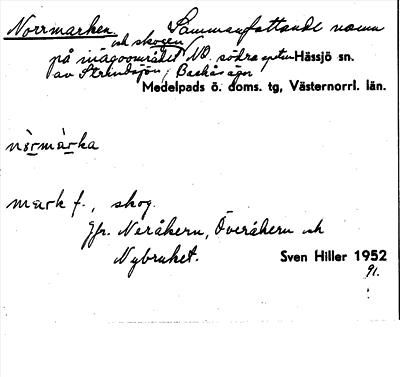 Norrmarken Sammanfattande namn
och skogen
på inägoområdet NO. södra spetsen Hässjö sn.
av Strindsjön, Backåsägor
Medelpads ö. doms. tg, Västernorrl. län.
nòrmàrka
mark f., skog.
Jfr. Neråkern, Överåkern och
Nybruket.
Sven Hiller 1952
91.